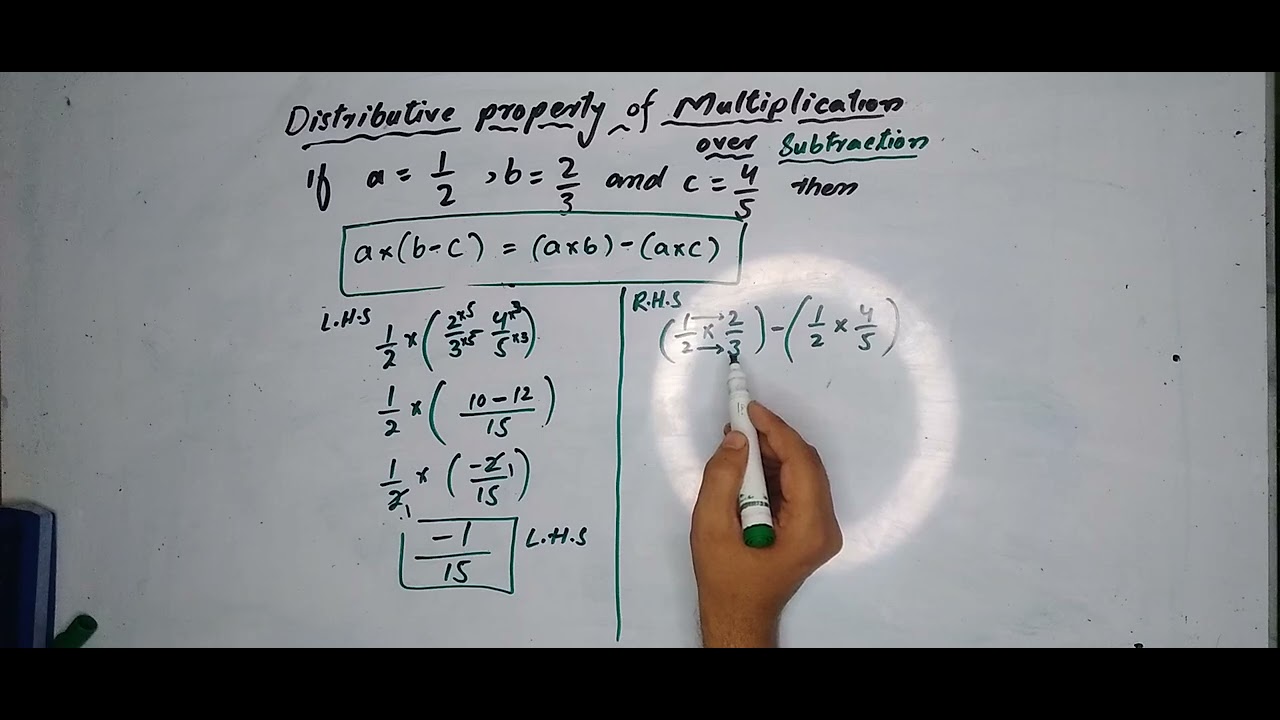 Distributive property of Multiplication
over Subtraction
If a = 1/2 , b = 2/3 and c = 4/5 then
a×(b-c) = (a×b)-(a×c)
L.H.S
1/2 × (2×5/3×5 - 4×3/5×3)
1/2 × (10-12/15)
1/2 1 × (-2 1/15)
-1/15 L.H.S
R.H.S
(1/2 × 2/3) - (1/2 × 4/5)